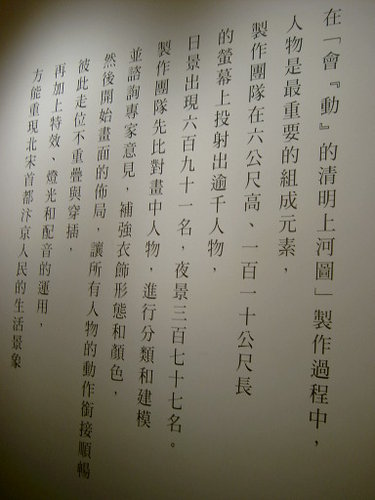 在「會『動』的清明上河圖」製作過程中，
人物是最重要的組成元素，
製作團隊在六公尺高、一百一十公尺長
的螢幕上投射出逾千人物，
日景出現六百九十一名，夜景三百七十七名。
製作團隊先比對畫中人物，進行分類和建模
並諮詢專家意見，補強衣飾形態和顏色，
然後開始畫面的佈局，讓所有人物的動作銜接順暢
彼此走位不重疊與穿插，
再加上特效、燈光和配音的運用，
方能重現北宋首都汴京人民的生活景象